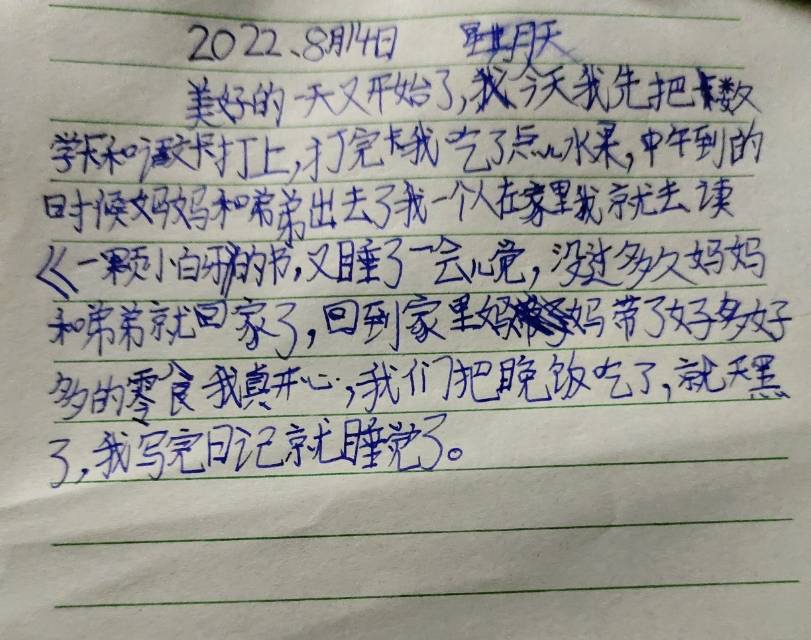 2022、8月14日 星期天
美好的一天又开始了,我今天我先把数
学卡和语文卡打上,打完卡我吃了点儿水果,中午到的
时候妈妈和弟弟出去了我一个人在家里我就去读
《一颗小白牙的书,又睡了一会儿觉,没过多久妈妈
和弟弟就回家了,回到家里妈妈带了好多好
多的零食我真开心,我们把晚饭吃了,就天黑
了,我写完日记就睡觉了。